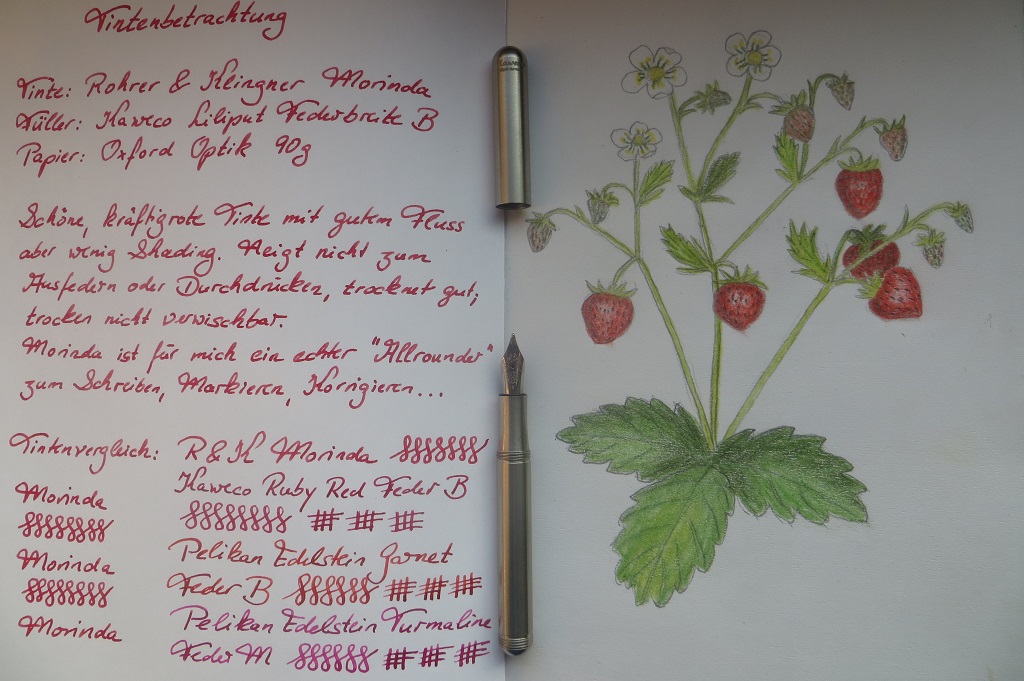 Tintenbetrachtung
Tinte: Rohrer & Klingner Morinda
Füller: Kaweco Liliput Federbreite B
Papier: Oxford Optik 90g
Schöne, kräftigrote Tinte mit gutem Fluss
aber wenig Shading. Neigt nicht zum
Ausfedern oder Durchdrücken, trocknet gut,
trocken nicht verwischbar.
Morinda ist für mich ein echter "Allrounder"
zum Schreiben, Markieren, Korrigieren...
Tintenvergleich: R & K Morinda
Morinda
Morinda
Morinda
Kaweco Ruby Red Feder B
Pelikan Edelstein Garnet
Feder B
Pelikan Edelstein Turmaline
Feder M